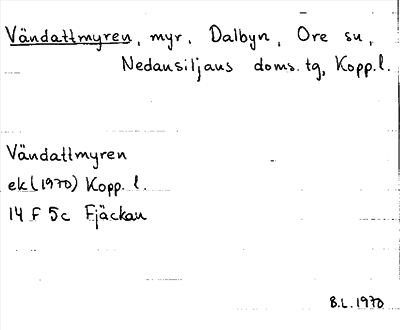 Vändattmyren, myr, Dalbyn, Ore sn,
Nedansiljans doms.tg, Kopp.l.
Vändattmyren
ek (1970) Kopp. l.
14 F 5c Fjäckan
B.L. 1970